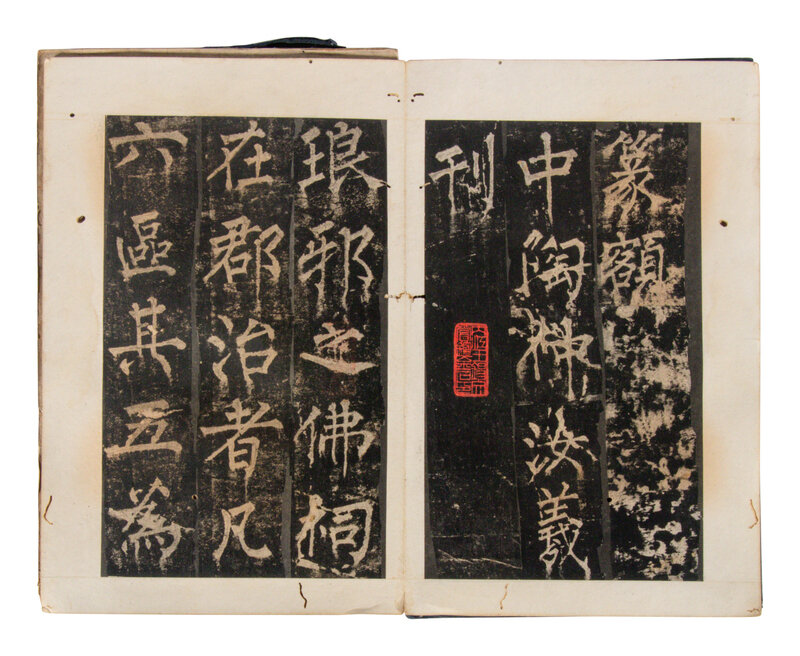 篆額
中陶汝羲
刊
琅邪之佛祠
在郡治者凡
六區其五為